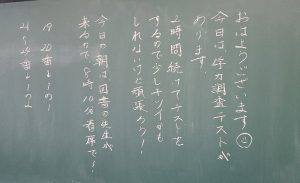 おはようございます☺
今日は学力調査テストが
あります。
2時間続けてテストを
するので少しキツイかも
しれないけど頑張ろう!
今日の朝は図書の先生が
来るので、8時10分着席で!
19、20番
21